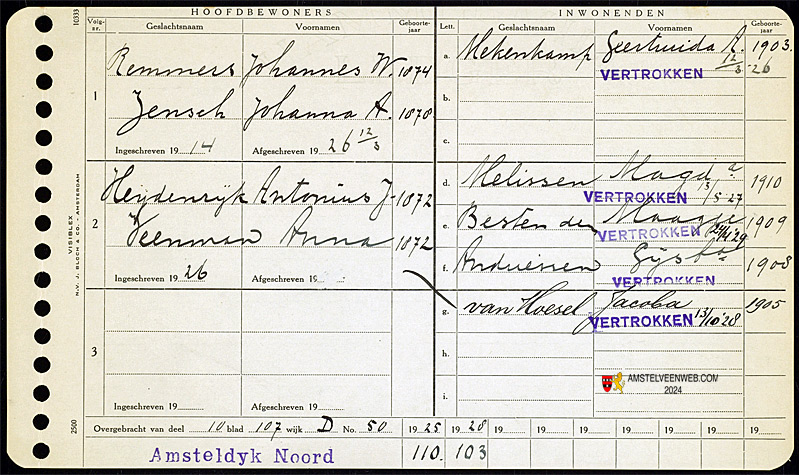 HOOFDBEWONERS
INWONENDEN
Volg-nr. Geslachtsnaam Voornamen Geboorte-jaar
Lett. Geslachtsnaam Voornamen Geboorte-jaar
1 Remmers Johannes W. 1874
Jensch Johanna A. 1878
Ingeschreven 19 14 Afgeschreven 19 26 12/3
a. Mekenkamp Geertruida A. 1903
VERTROKKEN 12/3 26
b.
c.
2 Heijdenrijk Antonius J. 1872
Veenman Anna 1872
Ingeschreven 19 26 Afgeschreven 19
d. Melissen Magd.a 1910
VERTROKKEN 13/5 27
e. Besten den 1909
VERTROKKEN
f. 1908
VERTROKKEN
g. van Hoesel Jacoba 1905
VERTROKKEN 13/10 '28
3
Ingeschreven 19 Afgeschreven 19
h.
i.
AMSTELVEENWEB.COM
2024
Overgebracht van deel 10 blad 107 wijk D No. 50 19 25 19 28 19 19 19 19 19 19
Amsteldyk Noord 110. 103
10333
VISIBLEX
N.V. J. BLOCH & CO. - AMSTERDAM
2500